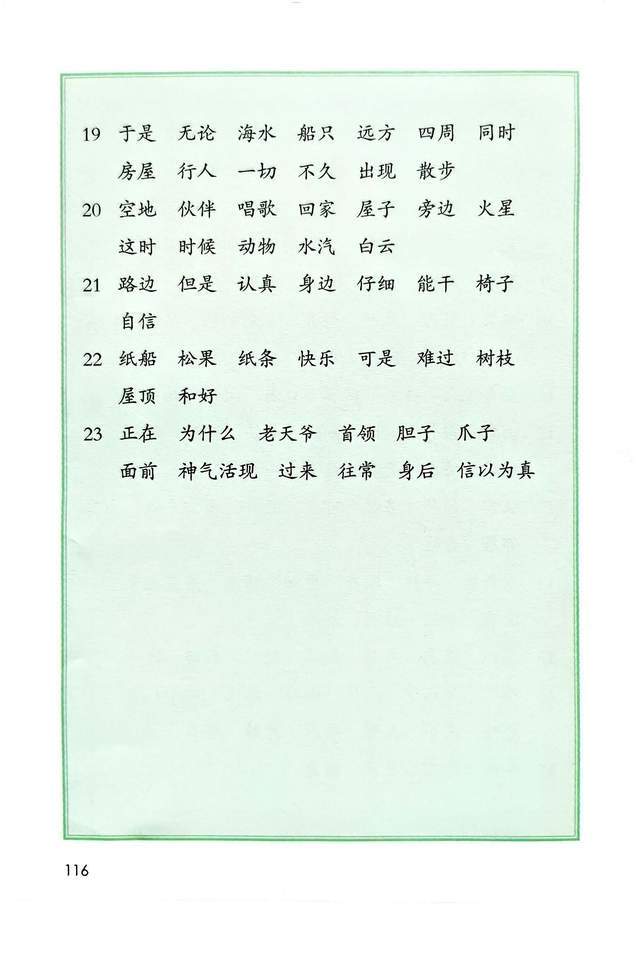 19 于是 无论 海水 船只 远方 四周 同时
房屋 行人 一切 不久 出现 散步
20 空地 伙伴 唱歌 回家 屋子 旁边 火星
这时 时候 动物 水汽 白云
21 路边 但是 认真 身边 仔细 能干 椅子
自信
22 纸船 松果 纸条 快乐 可是 难过 树枝
屋顶 和好
23 正在 为什么 老天爷 首领 胆子 爪子
面前 神气活现 过来 往常 身后 信以为真
116